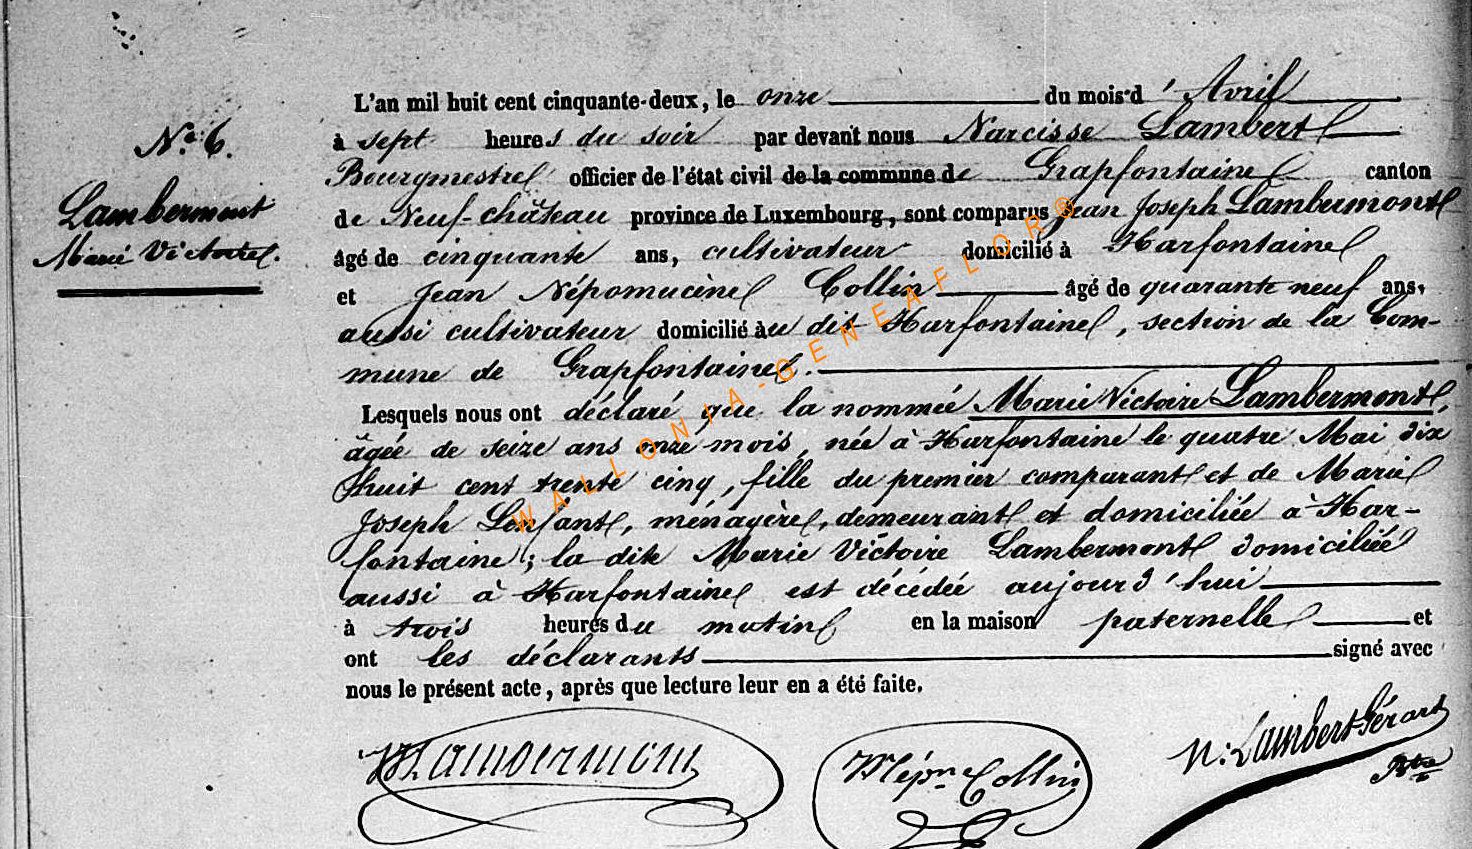 N.° 6.
Lambermont
Marie Victoire.
L'an mil huit cent cinquante-deux, le onze du mois d'Avril
à sept heures du soir par devant nous Narcisse Lambert
Bourgmestre officier de l'état civil de la commune de Grapfontaine canton
de Neuf-château province de Luxembourg, sont comparus Jean Joseph Lambermont
âgé de cinquante ans, cultivateur domicilié à Harfontaine
et Jean Népomucène Collin âgé de quarante neuf ans,
aussi cultivateur domicilié au dit Harfontaine, section de la Com-
mune de Grapfontaine.
Lesquels nous ont déclaré que la nommée Marie Victoire Lambermont,
âgée de seize ans onze mois, née à Harfontaine le quatre Mai dix
huit cent trente cinq, fille du premier comparant et de Marie
Joseph Lenfant, ménagère, demeurant et domiciliée à Har-
fontaine; la dite Marie Victoire Lambermont domiciliée
aussi à Harfontaine est décédée aujourd'hui
à trois heures du matin en la maison paternelle et
ont les déclarants signé avec
nous le présent acte, après que lecture leur en a été faite.
Lambermont
Népne Collin
N: Lambert-Gérard
WALLONIA-GENEAFLOR®